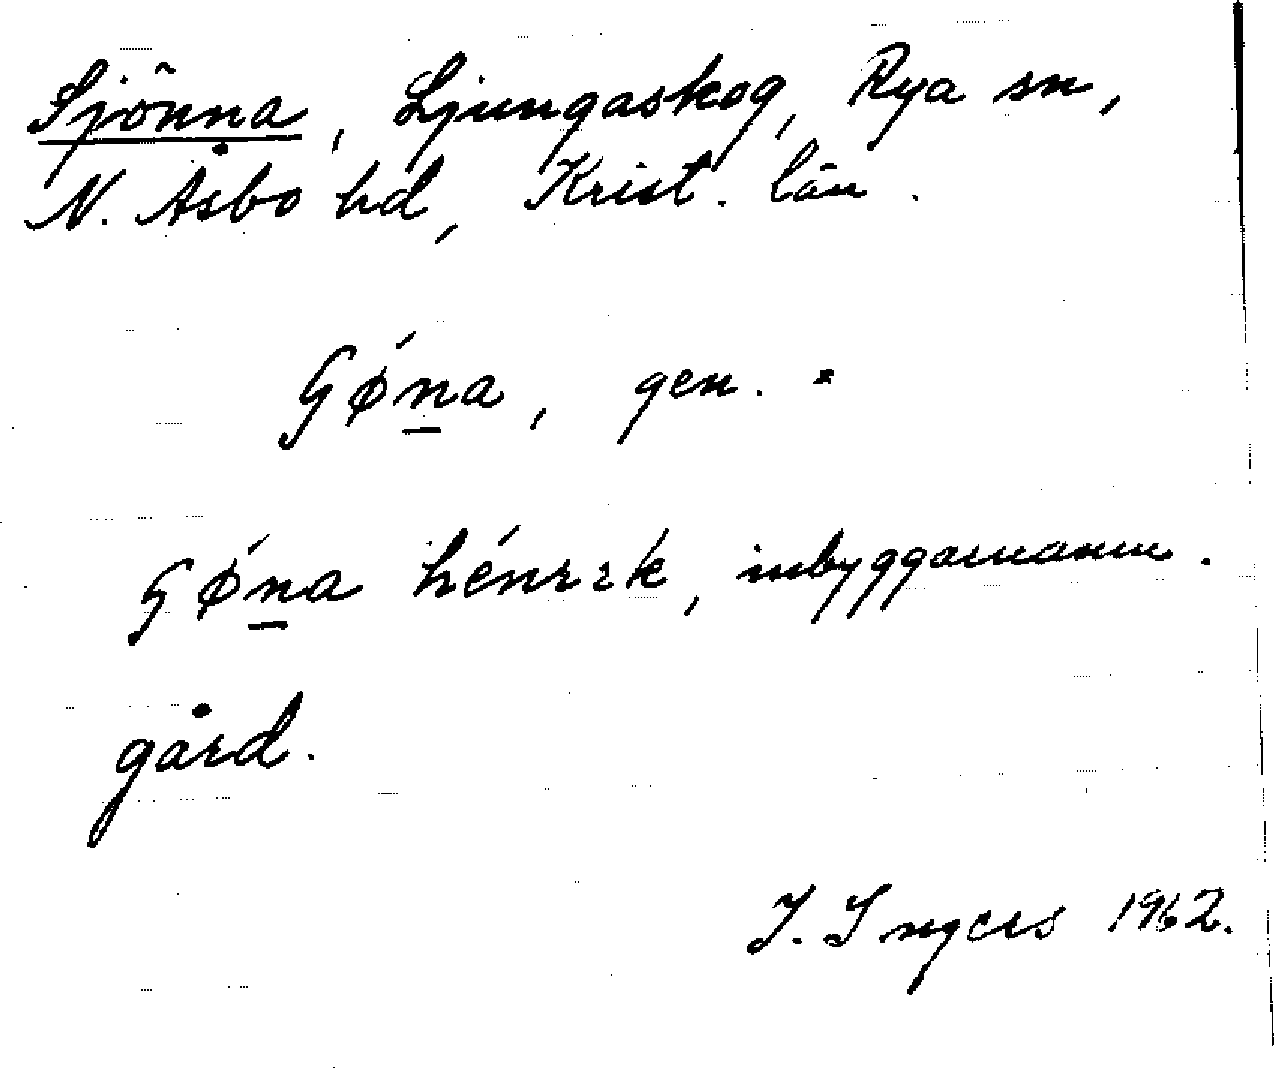 Sjönna, Ljungaskog, Rya sn,
N. Åsbo hd, Krist. län.
Gǿna, gen. =
Gǿna hénrik, inbyggarenamn.
gård.
I. Ingers 1962.